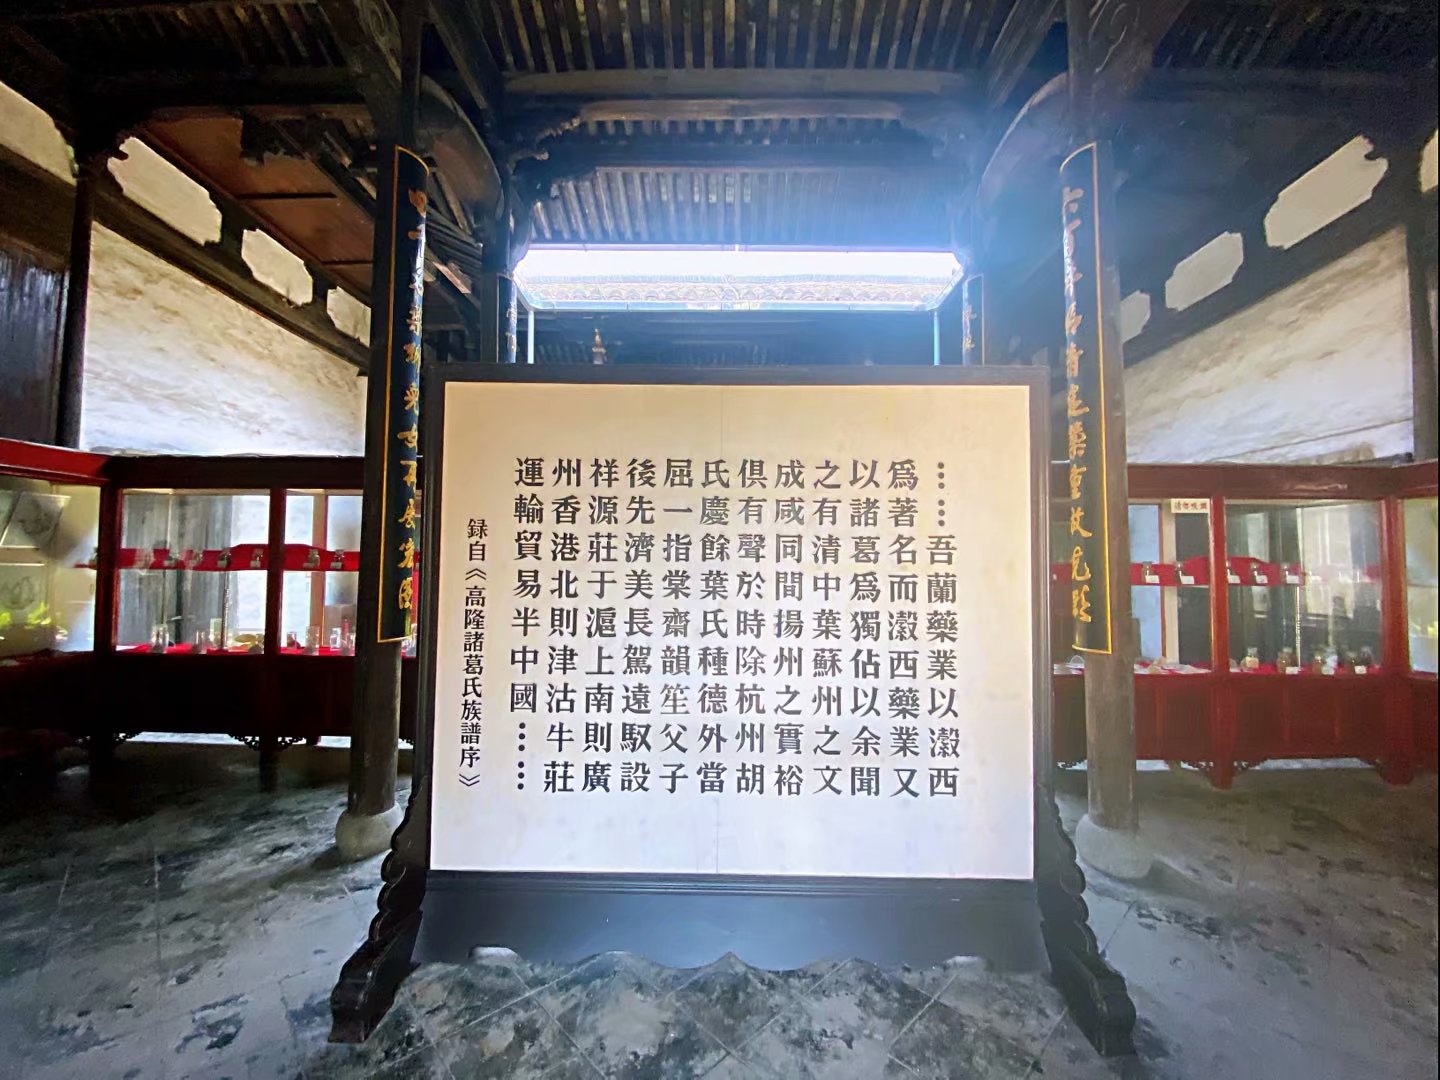 ……吾蘭藥業以瀫西
爲著名而瀫西藥業又
以諸葛爲獨佔以余聞
之有清中葉蘇州之文
成咸同間揚州之實裕
俱有聲於時除杭州胡
氏慶餘葉氏種德外當
屈一指棠齋韻笙父子
後先濟美長駕遠馭設
祥源莊于滬上南則廣
州香港北則津沽牛莊
運輸貿易半中國……
録自《高隆諸葛氏族譜序》